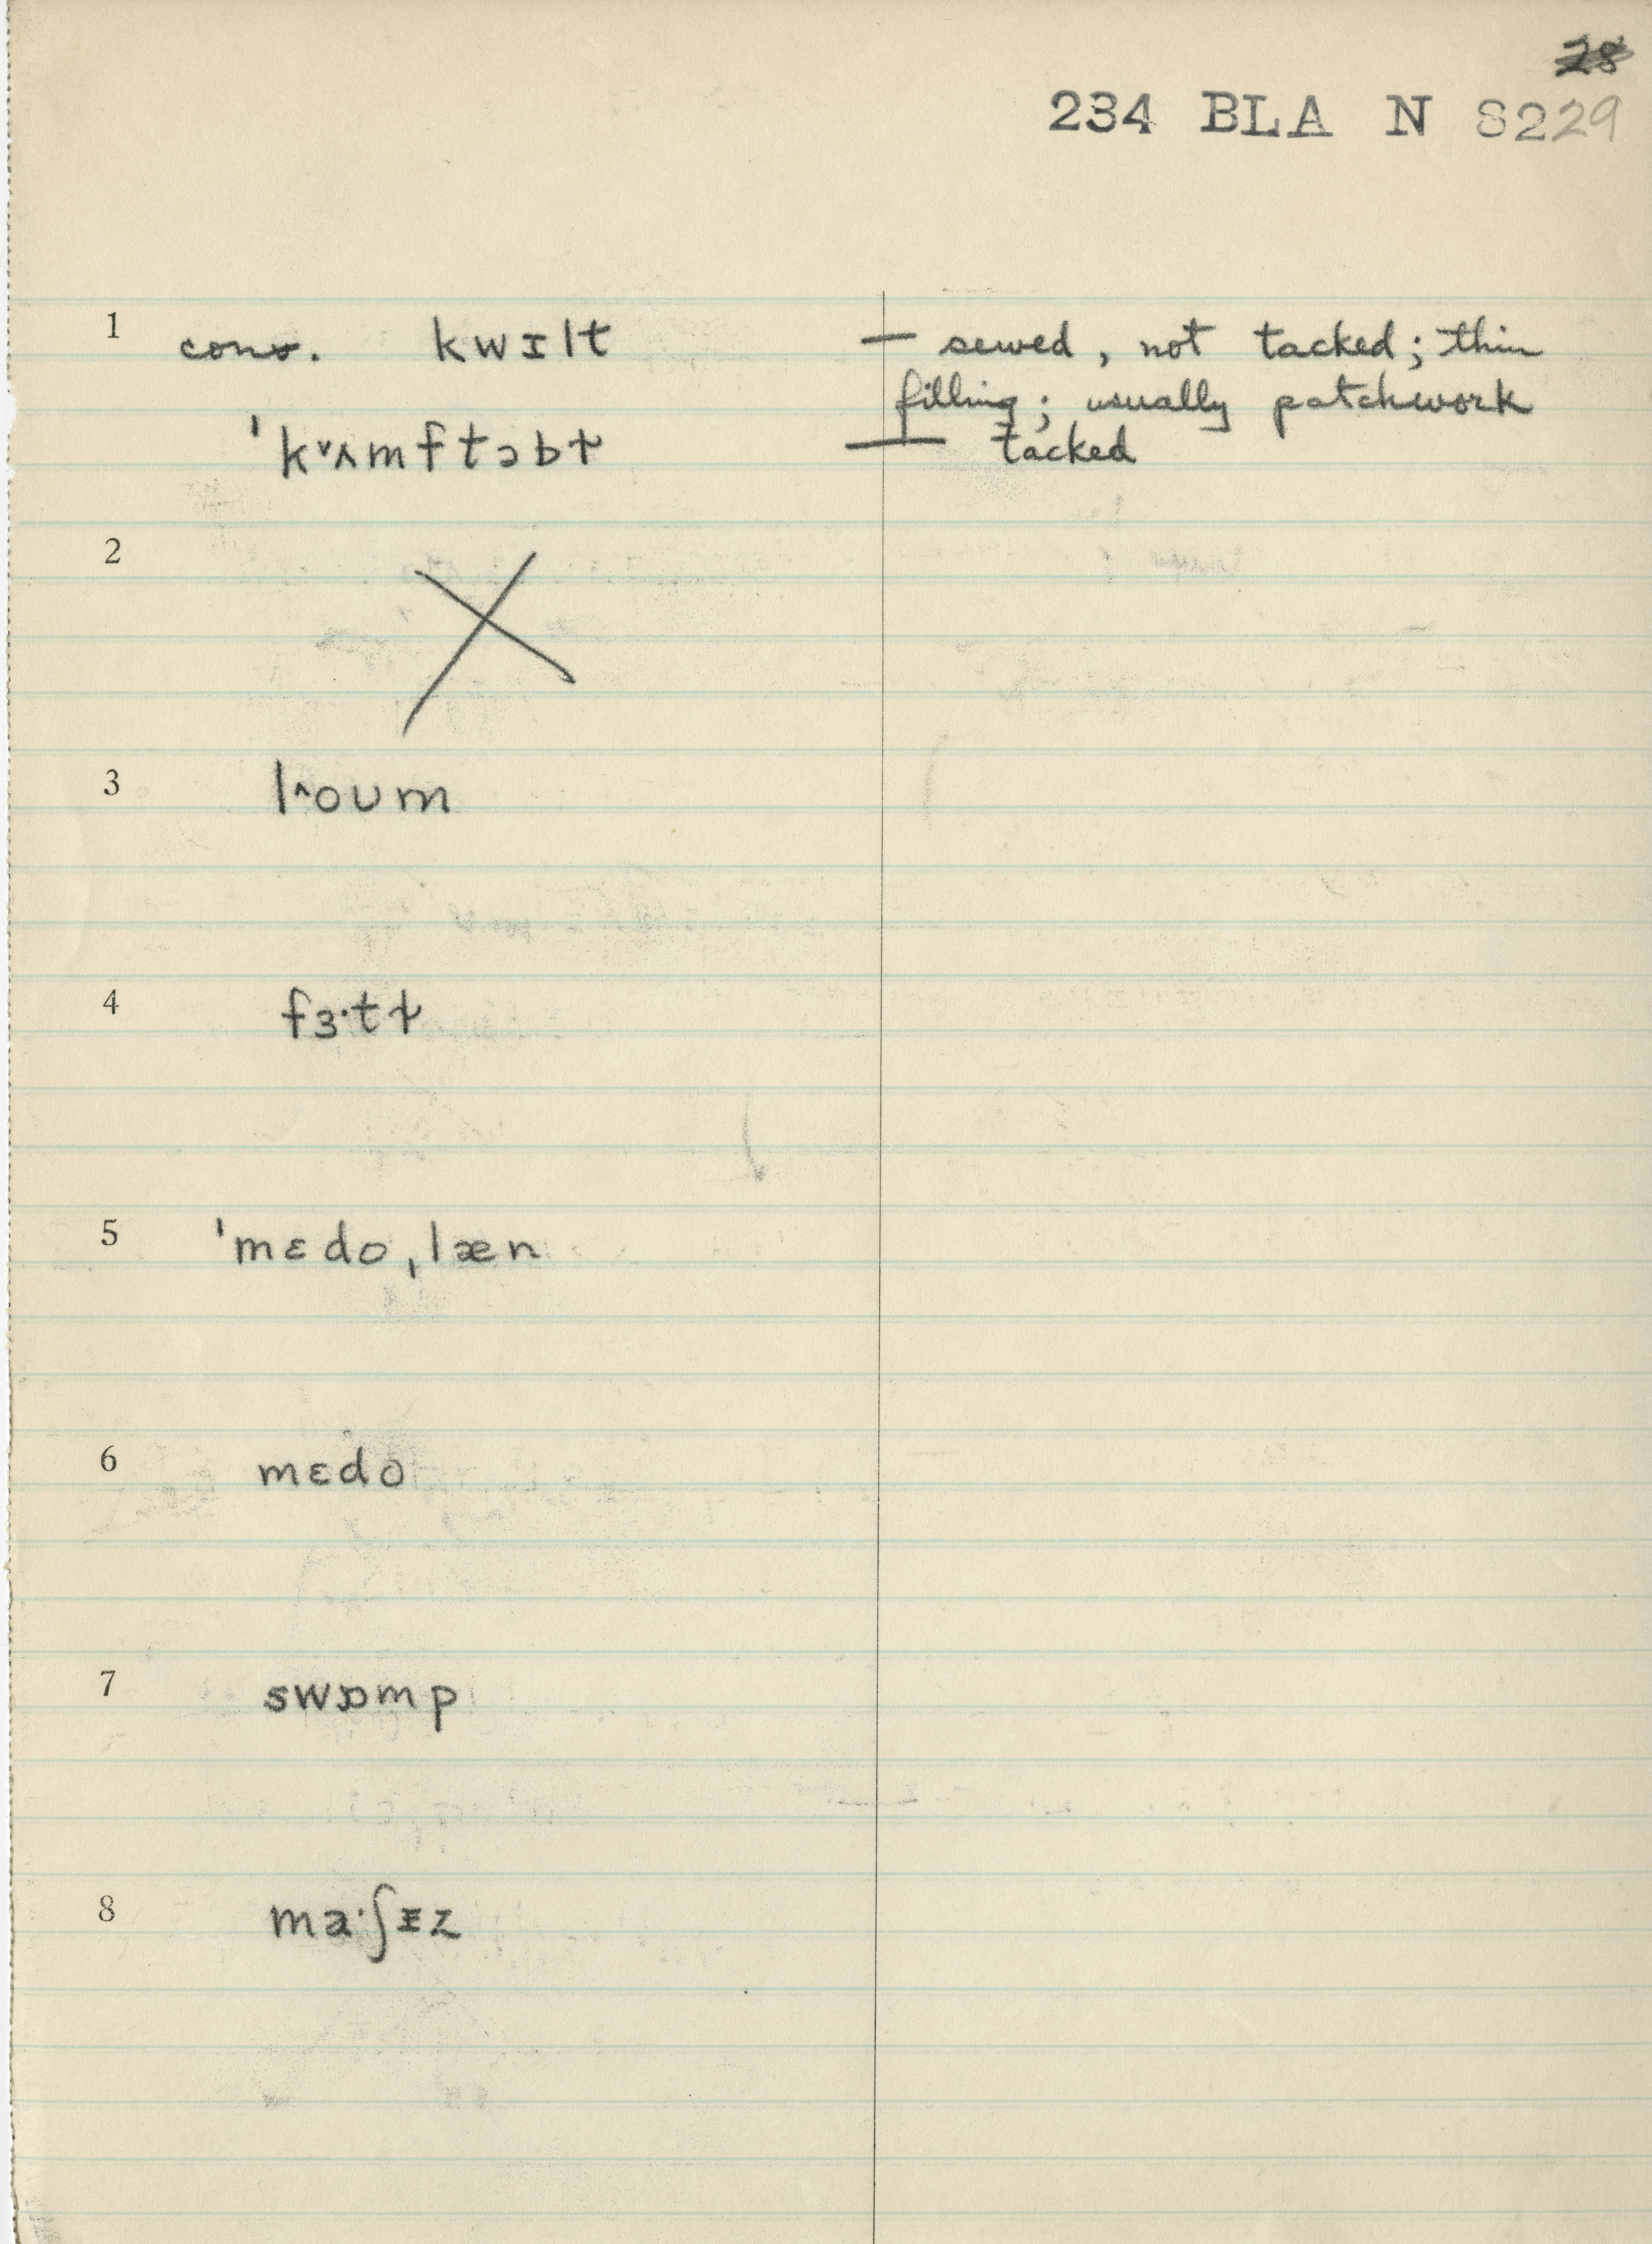 28
234 BLA N 8229
1 cons. kwɪlt — sewed, not tacked; thin
filling; usually patchwork
ˈk˅ʌmftəbɫ — tacked
2
3 l^oʊm
4 fɜ·tɫ
5 ˈmɛdoˌlæn
6 mɛdo
7 swɒmp
8 ma·ʃɪz